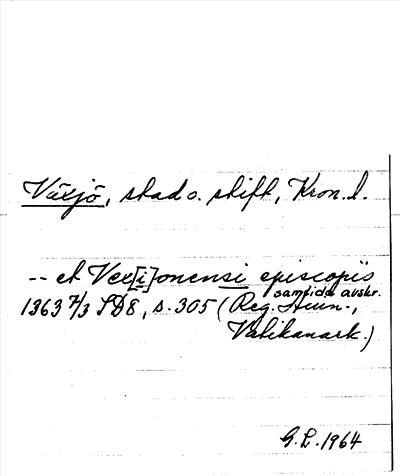 Växjö, stad o. stift, Kron. l.
-- et Vex[i]onensi episcopis
samtida avskr.
1363 7/3 SD8, s. 305 (Reg. Aven.,
Vatikanark.)
G.L. 1964